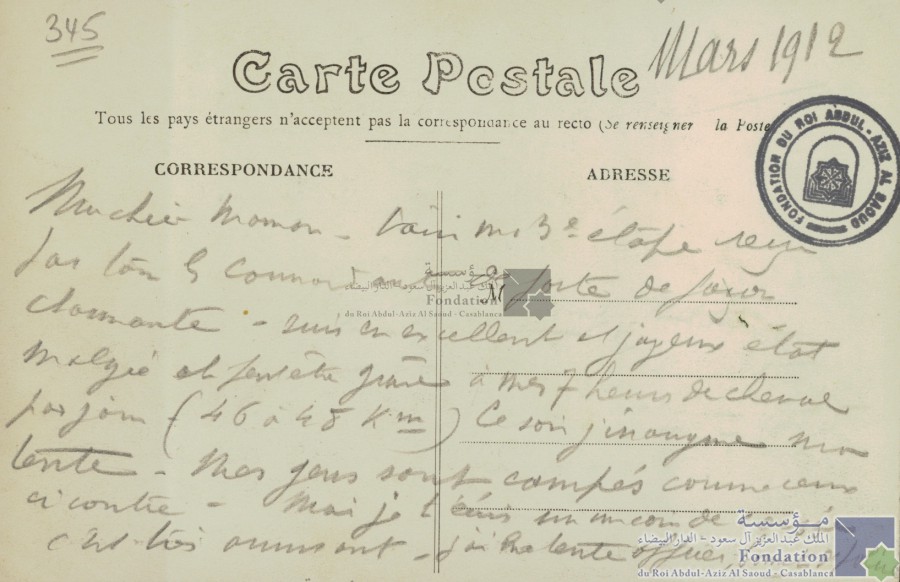 345
Mars 1912
Carte Postale
Tous les pays étrangers n'acceptent pas la correspondance au recto (Se renseigner la Poste
FONDATION DU ROI ABDUL-AZIZ AL SAOUD
CORRESPONDANCE
ADRESSE
Mon cher Momon - Voici ma 3e étape reçu
par tous les Commandants de poste de façon
charmante - suis en excellent et joyeux état
malgré et peut être grâce à mes 7 heures de cheval
par jour (46 à 48 Km) Ce soir j'inaugure ma
tente - Mes gens sont campés comme ceux
ci contre - Moi je t'écris un coin de
c'est très amusant - j'ai ma tente
مؤسسة
الملك عبد العزيز آل سعود - الدار البيضاء
Fondation
du Roi Abdul-Aziz Al Saoud - Casablanca
مؤسسة
الملك عبد العزيز آل سعود - الدار البيضاء
Fondation
du Roi Abdul-Aziz Al Saoud - Casablanca